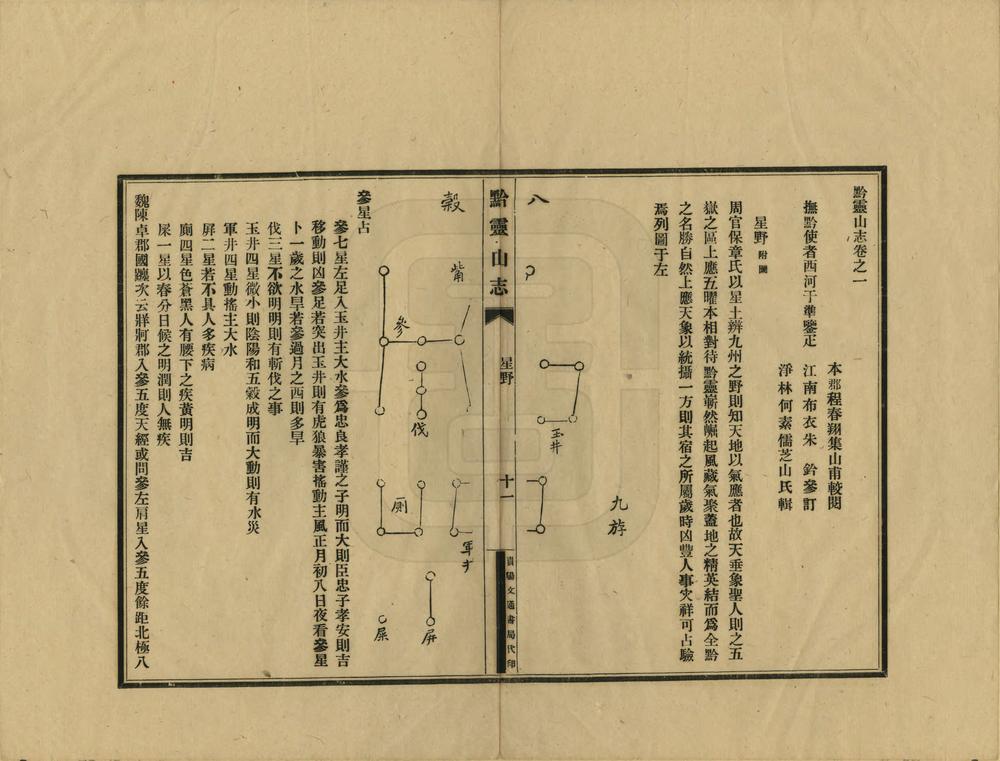 黔靈山志卷之一
撫黔使者西河于準鑒定
本郡程春翔集山甫較閱
江南布衣朱　鈐參訂
淨林何素儒芝山氏輯
星野 附圖
周官保章氏以星土辨九州之野則知天地以氣應者也故天垂象聖人則之五
嶽之區上應五曜本相對待黔靈嶄然崛起風藏氣聚蓋地之精英結而爲全黔
之名勝自然上應天象以統攝一方則其宿之所屬歲時凶豐人事灾祥可占驗
焉列圖于左
九斿
玉井
八
黔靈山志
星野
十一
貴陽文通書局代印
穀
觜
參
伐
厠
軍井
屏
屎
參星占
參七星左足入玉井主大水參爲忠良孝謹之子明而大則臣忠子孝安則吉
移動則凶參足若突出玉井則有虎狼暴害搖動主風正月初八日夜看參星
卜一歲之水旱若參過月之西則多旱
伐三星不欲明明則有斬伐之事
玉井四星微小則陰陽和五穀成明而大動則有水災
軍井四星動搖主大水
屏二星若不具人多疾病
廁四星色蒼黑人有腰下之疾黃明則吉
屎一星以春分日候之明潤則人無疾
魏陳卓郡國躔次云牂牁郡入參五度天經或問參左肩星入參五度餘距北極八